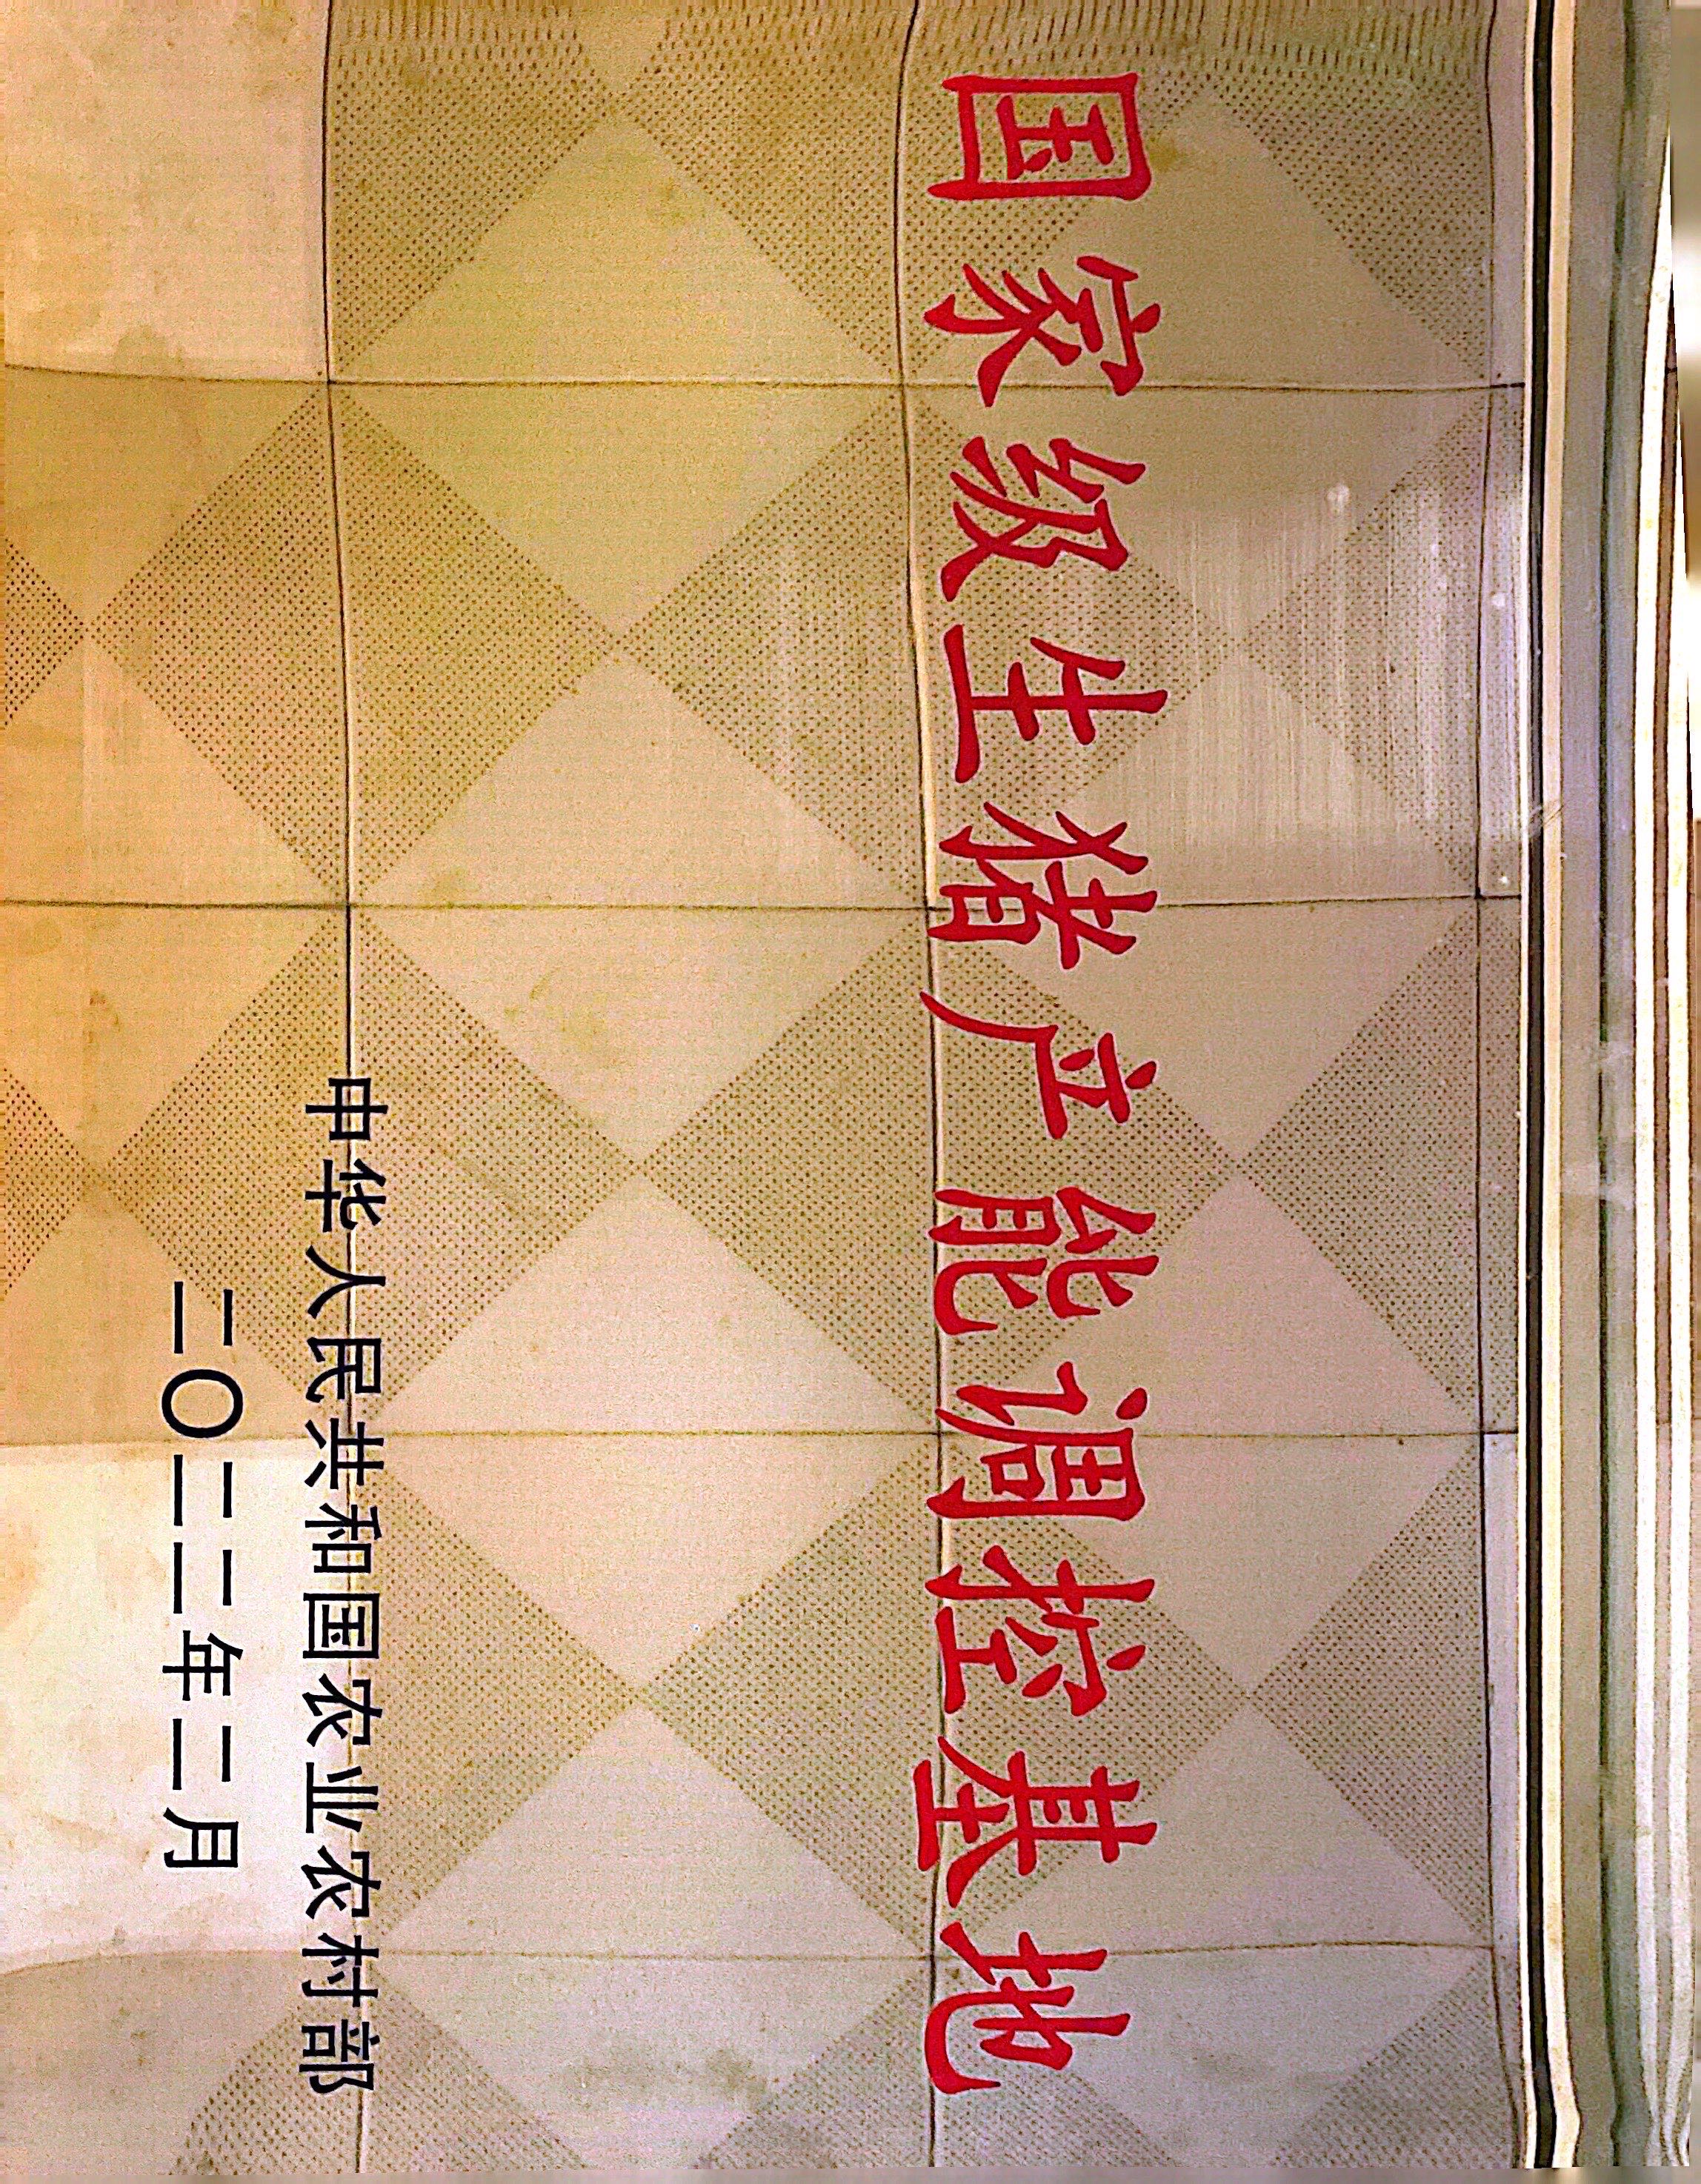 国家级生猪产能调控基地
中华人民共和国农业农村部
二〇二二年二月